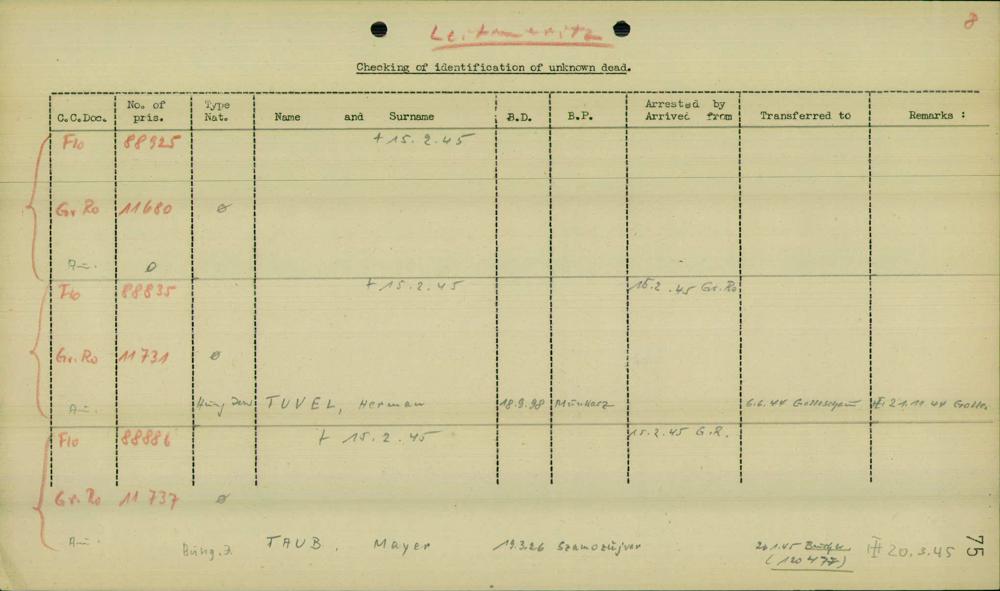 8
Leitmeritz
Checking of identification of unknown dead.
C.C.Doc. No. of pris. Type Nat. Name and Surname B.D. B.P. Arrested by Arrived from Transferred to Remarks :
Flo 88925 + 15.2.45
Gr. Ro 11680 ø
Au. 0
Flo 88835 + 15.2.45 15.2.45 Gr. Ro
Gr. Ro 11731 ø
Au. TUVEL, Herman 18.9.98 Munkacz 6.6.44 21.11.44
Flo 88886 + 15.2.45 15.2.45 G.R.
Gr. Ro 11737 ø
Au. TAUB, Mayer 19.3.26 Szamozujvar 20.3.45
75
(120477)